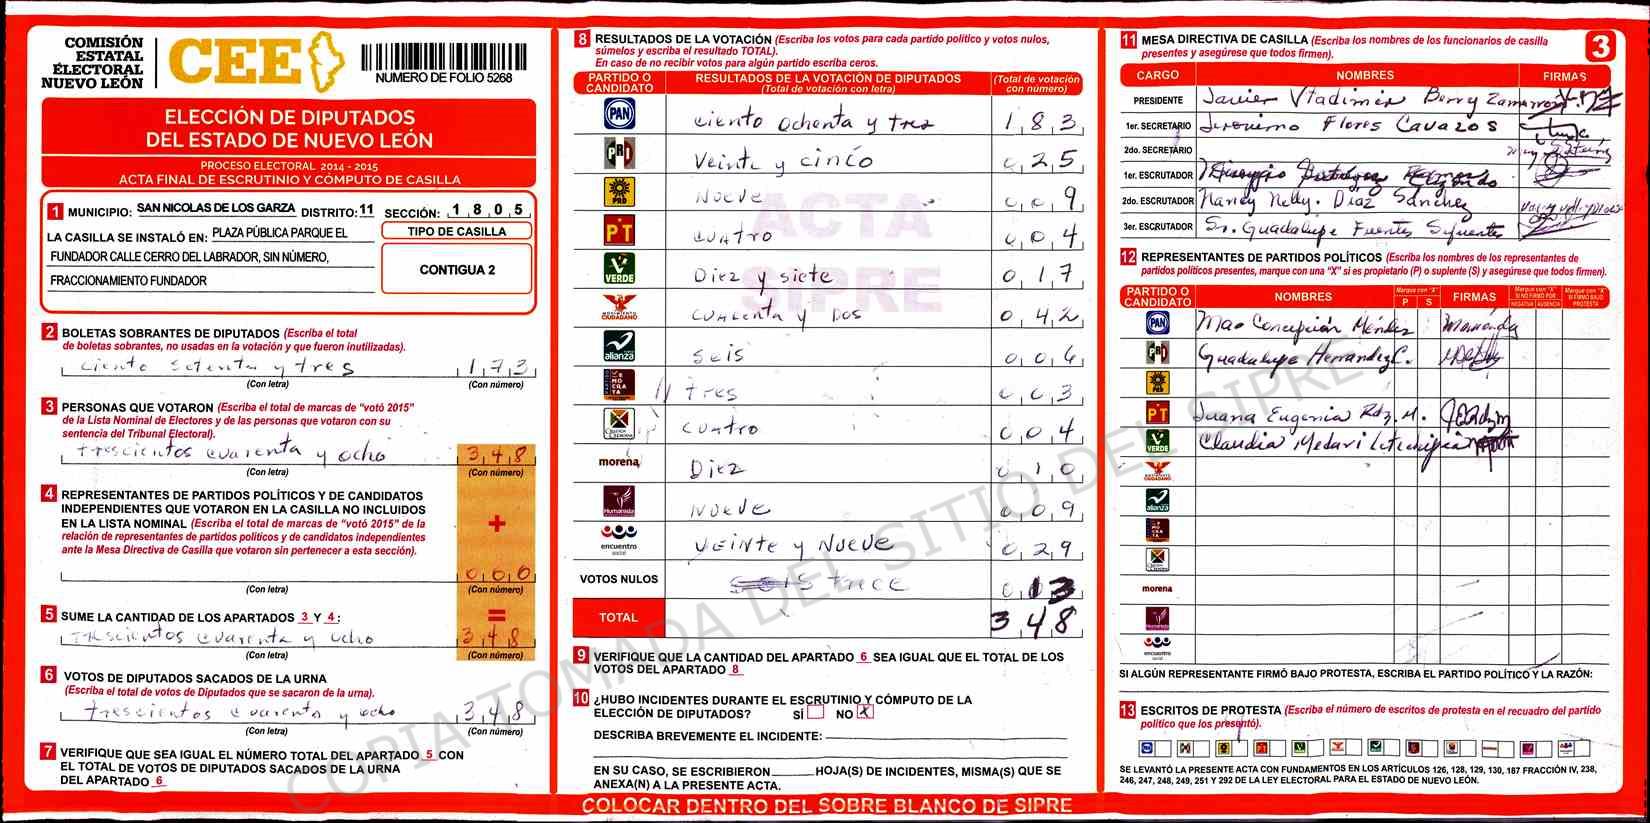 COMISIÓN
ESTATAL
ELECTORAL
NUEVO LEÓN
CEE
NUMERO DE FOLIO 5268
ELECCIÓN DE DIPUTADOS
DEL ESTADO DE NUEVO LEÓN
PROCESO ELECTORAL 2014 - 2015
ACTA FINAL DE ESCRUTINIO Y CÓMPUTO DE CASILLA
1 MUNICIPIO: SAN NICOLAS DE LOS GARZA DISTRITO: 11 SECCIÓN: 1805
LA CASILLA SE INSTALÓ EN: PLAZA PÚBLICA PARQUE EL
FUNDADOR CALLE CERRO DEL LABRADOR, SIN NÚMERO,
FRACCIONAMIENTO FUNDADOR
TIPO DE CASILLA
CONTIGUA 2
2 BOLETAS SOBRANTES DE DIPUTADOS (Escriba el total
de boletas sobrantes, no usadas en la votación y que fueron inutilizadas).
ciento setenta y tres 173
(Con letra) (Con número)
3 PERSONAS QUE VOTARON (Escriba el total de marcas de "votó 2015"
de la Lista Nominal de Electores y de las personas que votaron con su
sentencia del Tribunal Electoral).
trescientos cuarenta y ocho 348
(Con letra) (Con número)
4 REPRESENTANTES DE PARTIDOS POLÍTICOS Y DE CANDIDATOS
INDEPENDIENTES QUE VOTARON EN LA CASILLA NO INCLUIDOS
EN LA LISTA NOMINAL (Escriba el total de marcas de "votó 2015" de la
relación de representantes de partidos políticos y de candidatos independientes
ante la Mesa Directiva de Casilla que votaron sin pertenecer a esta sección).
+
000
(Con letra) (Con número)
=
5 SUME LA CANTIDAD DE LOS APARTADOS 3 Y 4:
trescientos cuarenta y ocho 348
(Con letra) (Con número)
6 VOTOS DE DIPUTADOS SACADOS DE LA URNA
(Escriba el total de votos de Diputados que se sacaron de la urna).
trescientos cuarenta y ocho 348
(Con letra) (Con número)
7 VERIFIQUE QUE SEA IGUAL EL NÚMERO TOTAL DEL APARTADO 5 CON
EL TOTAL DE VOTOS DE DIPUTADOS SACADOS DE LA URNA
DEL APARTADO 6
8 RESULTADOS DE LA VOTACIÓN (Escriba los votos para cada partido político y votos nulos,
súmelos y escriba el resultado TOTAL).
En caso de no recibir votos para algún partido escriba ceros.
PARTIDO O CANDIDATO RESULTADOS DE LA VOTACIÓN DE DIPUTADOS (Total de votación con letra) (Total de votación con número)
PAN ciento ochenta y tres 183
PRI Veinte y cinco 025
PRD Nueve 009
PT cuatro 004
VERDE Diez y siete 017
MOVIMIENTO CIUDADANO cuarenta y Dos 042
alianza seis 006
tres 003
cuatro 004
morena Diez 010
Humanista Nueve 009
encuentro social Veinte y Nueve 029
VOTOS NULOS trece 013
TOTAL 348
ACTA
SIPRE
9 VERIFIQUE QUE LA CANTIDAD DEL APARTADO 6 SEA IGUAL QUE EL TOTAL DE LOS
VOTOS DEL APARTADO 8
10 ¿HUBO INCIDENTES DURANTE EL ESCRUTINIO Y CÓMPUTO DE LA
ELECCIÓN DE DIPUTADOS? SÍ NO X
DESCRIBA BREVEMENTE EL INCIDENTE:
EN SU CASO, SE ESCRIBIERON HOJA(S) DE INCIDENTES, MISMA(S) QUE SE
ANEXA(N) A LA PRESENTE ACTA.
COLOCAR DENTRO DEL SOBRE BLANCO DE SIPRE
COPIA TOMADA DEL SITIO DEL SIPRE
11 MESA DIRECTIVA DE CASILLA (Escriba los nombres de los funcionarios de casilla
presentes y asegúrese que todos firmen).
3
CARGO NOMBRES FIRMAS
PRESIDENTE Javier Vladimir Berny Zamarron
1er. SECRETARIO Jeronimo Flores Cavazos
2do. SECRETARIO
1er. ESCRUTADOR
2do. ESCRUTADOR Nancy Nelly Diaz Sánchez
3er. ESCRUTADOR Sr. Guadalupe Fuentes Sifuentes
12 REPRESENTANTES DE PARTIDOS POLÍTICOS (Escriba los nombres de los representantes de
partidos políticos presentes, marque con una "X" si es propietario (P) o suplente (S) y asegúrese que todos firmen).
PARTIDO O CANDIDATO NOMBRES Marque con "X" P S FIRMAS Marque con "X" SI NO FIRMÓ POR NEGATIVA AUSENCIA Marque con "X" SI FIRMÓ BAJO PROTESTA
PAN Ma. Concepción Méndez
PRI Guadalupe Hernandez C.
PRD
PT Juana Eugenia Rdz. M.
VERDE Claudia
MOVIMIENTO CIUDADANO
alianza
morena
Humanista
encuentro social
SI ALGÚN REPRESENTANTE FIRMÓ BAJO PROTESTA, ESCRIBA EL PARTIDO POLÍTICO Y LA RAZÓN:
13 ESCRITOS DE PROTESTA (Escriba el número de escritos de protesta en el recuadro del partido
político que los presentó).
SE LEVANTÓ LA PRESENTE ACTA CON FUNDAMENTOS EN LOS ARTÍCULOS 126, 128, 129, 130, 187 FRACCIÓN IV, 238,
246, 247, 248, 249, 251 Y 292 DE LA LEY ELECTORAL PARA EL ESTADO DE NUEVO LEÓN.